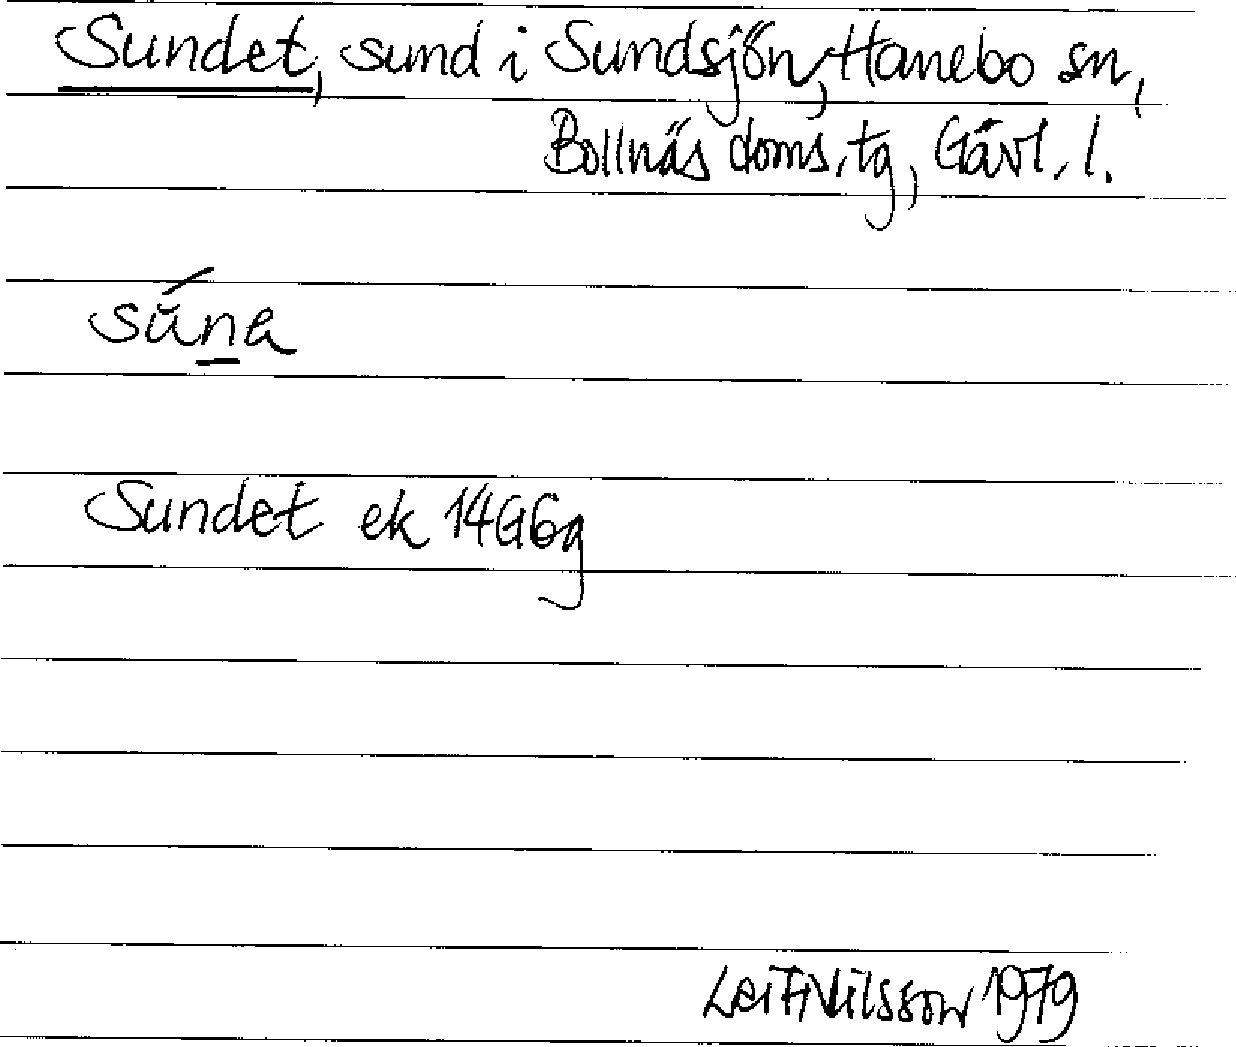 Sundet, sund i Sundsjön, Hanebo sn,
Bollnäs doms.tg, Gävl. l.
sŭ́n̲a
Sundet ek 14G6g
Leif Nilsson 1979